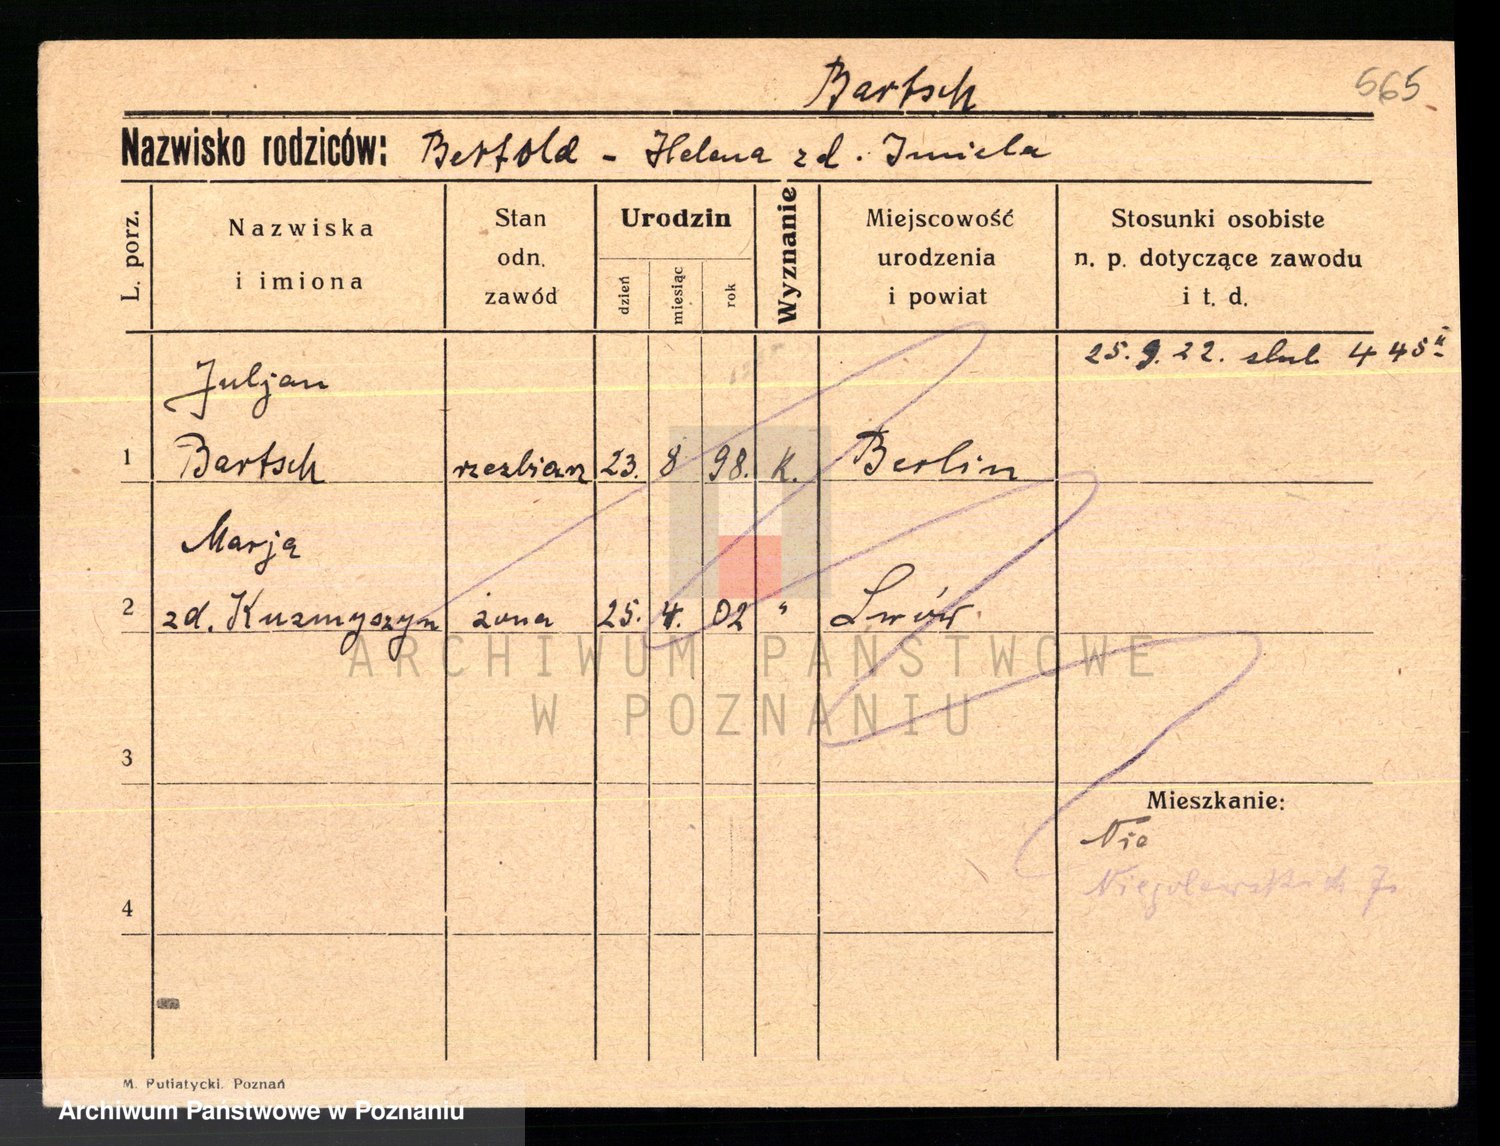 Bartsch
565
Nazwisko rodziców: Bertold - Helena zd. Imiela
L. porz.
Nazwiska
i imiona
Stan
odn.
zawód
Urodzin
dzień
miesiąc
rok
Wyznanie
Miejscowość
urodzenia
i powiat
Stosunki osobiste
n. p. dotyczące zawodu
i t. d.
25. 9. 22. slub 445
Juljan
1 Bartsch rzezbiarz 23. 8 98. K. Berlin
Marja
2 zd. Kuzmyszyn żona 25. 4. 02 " Lwów.
ARCHIWUM PAŃSTWOWE
W POZNANIU
3
Mieszkanie:
Nie
Niegolewskich
4
M. Putiatycki. Poznań
Archiwum Państwowe w Poznaniu